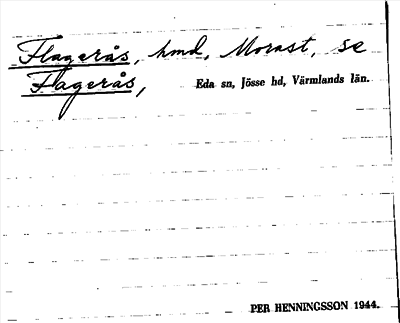 Flagerås, hmd, Morast, se
Flagerås, Eda sn, Jösse hd, Värmlands län.
PER HENNINGSSON 1944.